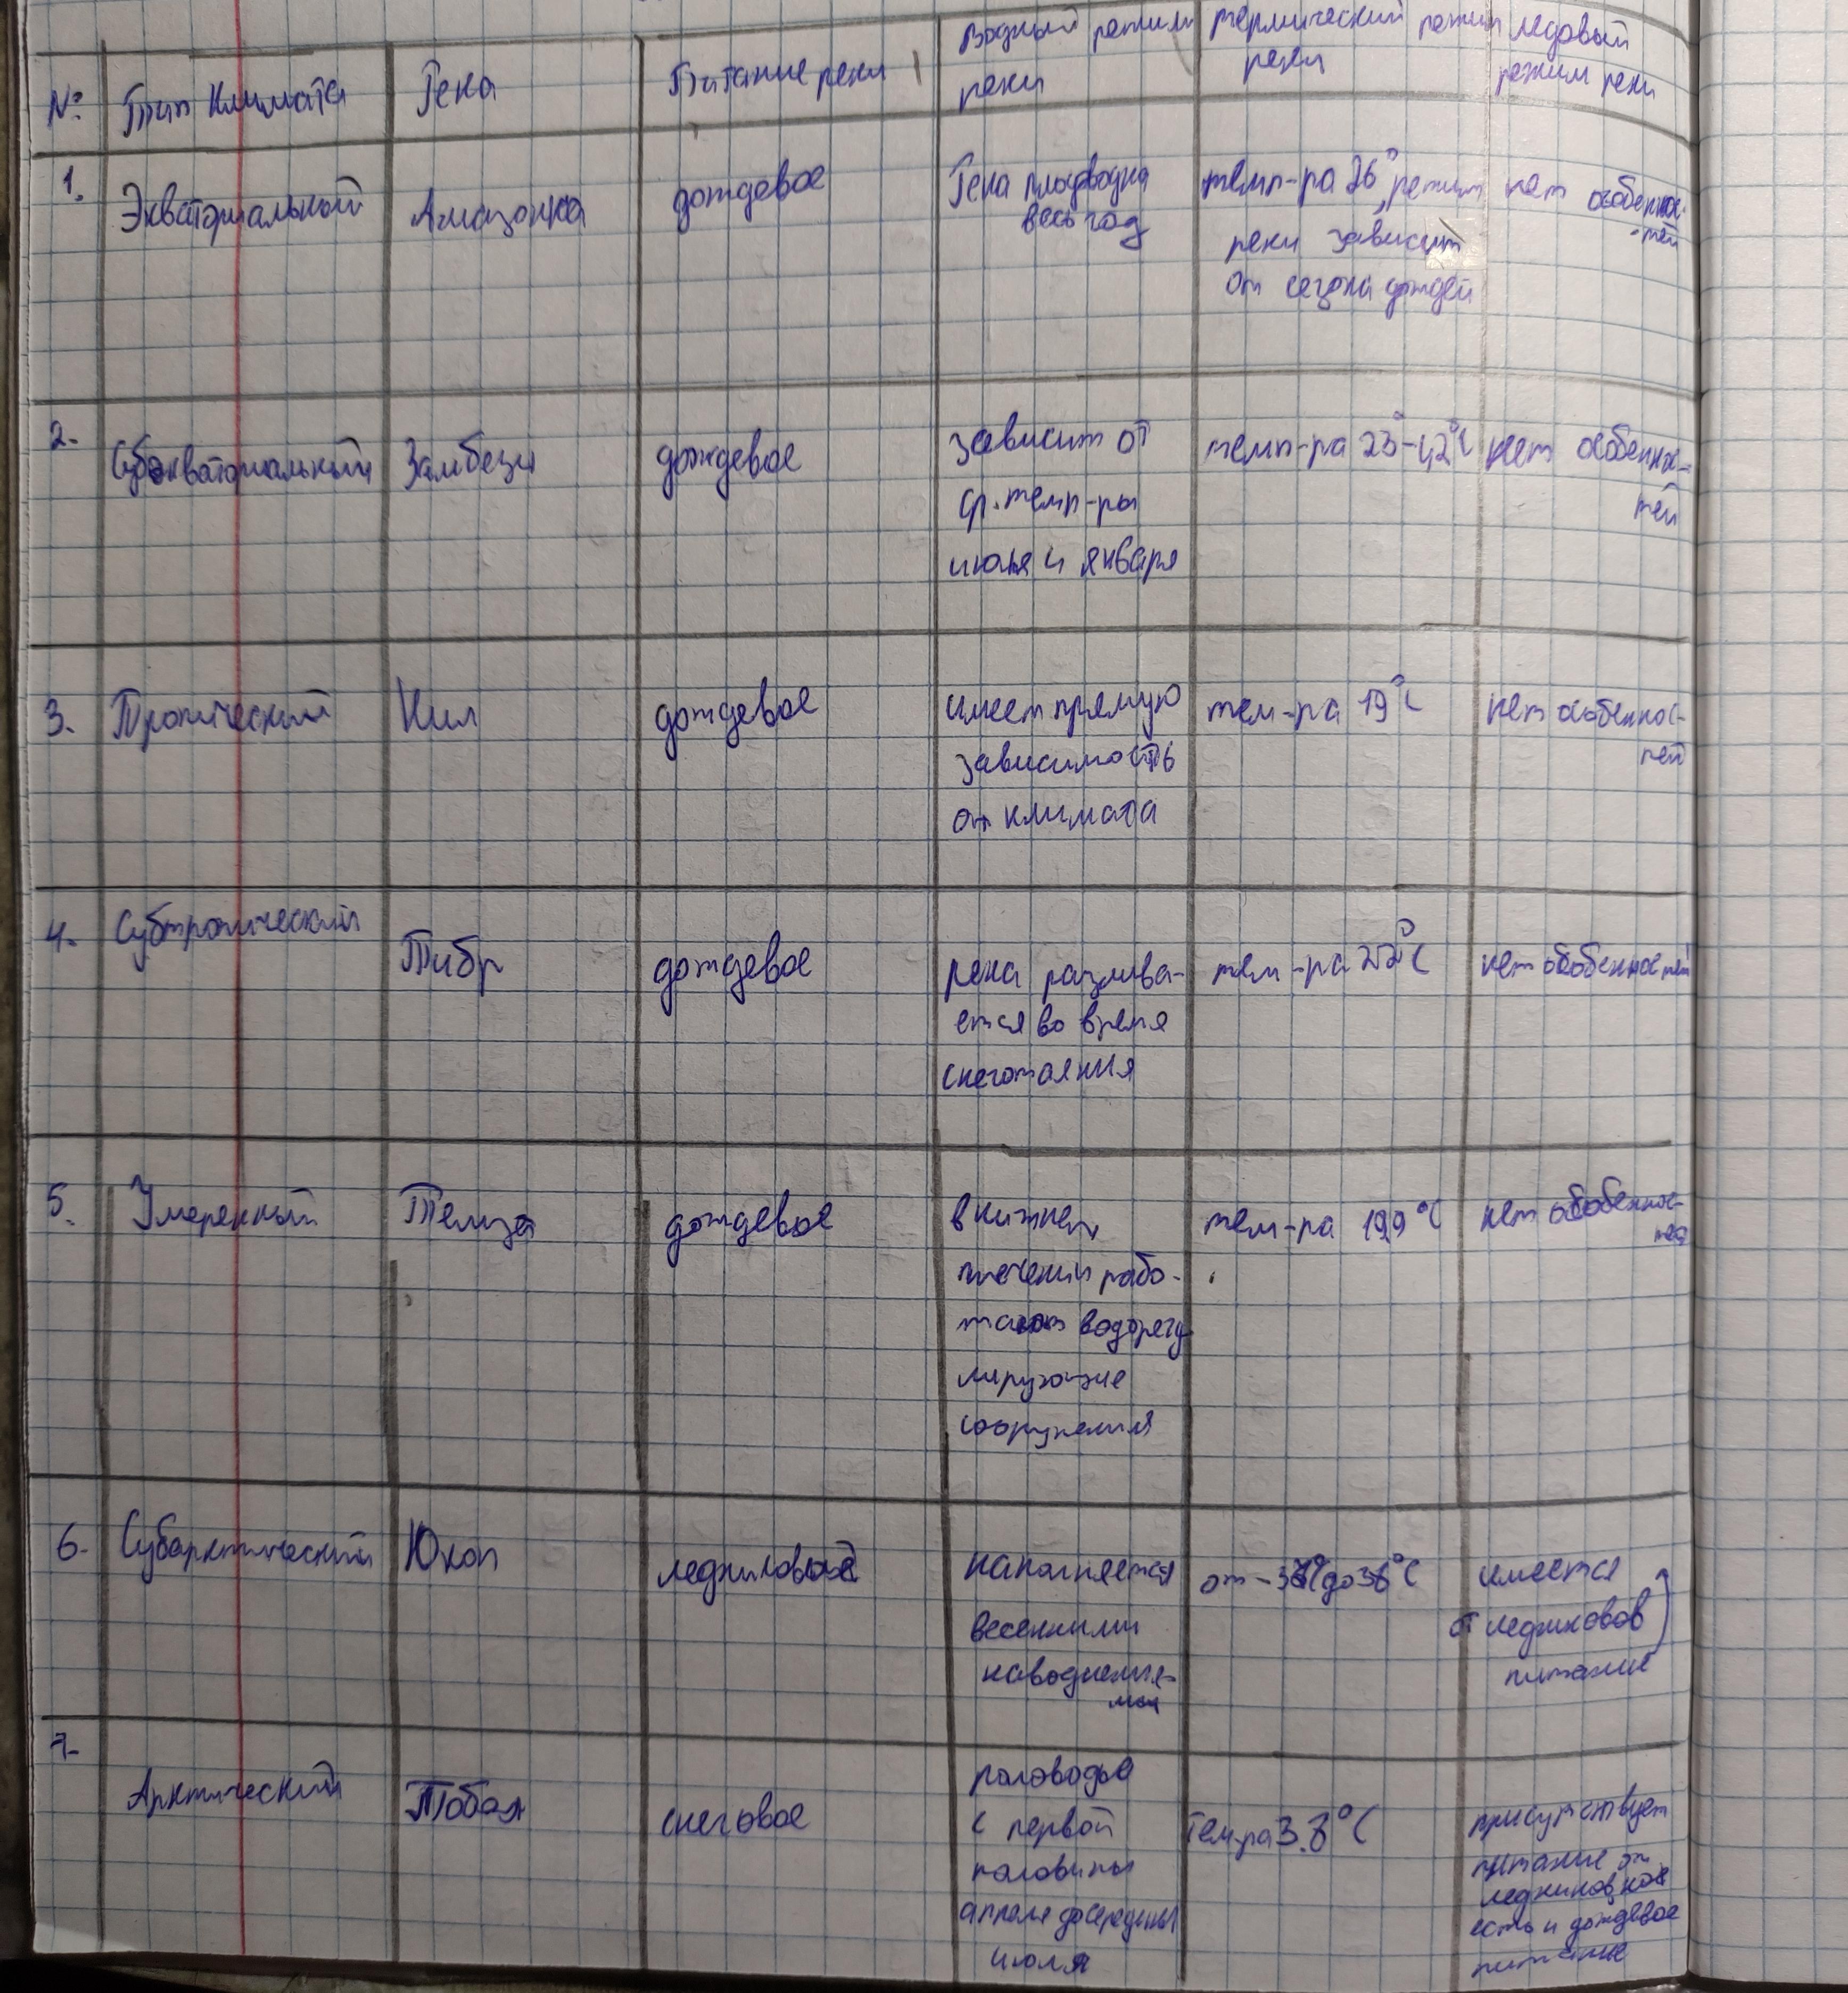 № Тип климата Река Питание реки
водный режим реки
термический режим реки
ледовый режим реки
1. Экваториальный Амазонка дождевое
Река полноводна
весь год
темп-ра 26°, режим
реки зависит
от сезона дождей
нет особеннос-
тей
2. Субэкваториальный Замбези дождевое
зависит от
ср. темп-ры
июля и января
темп-ра 23°-42°C
нет особеннос-
тей
3. Тропический Нил дождевое
имеет прямую
зависимость
от климата
тем-ра 19°C
нет особеннос-
тей
4. Субтропический Тибр дождевое
река разлива-
ется во время
снеготаяния
тем-ра 22°C
нет особенностей
5. Умеренный Темза дождевое
в нижнем
течении рабо-
тают водорегу
лирующие
сооружения
тем-ра 19,9 °C
нет особеннос-
тей
6. Субарктический Юкон ледниковое
наполняется
весенними
наводнения-
ми
имеется
от ледников
питание
7. Арктический Тобол снеговое
половодье
с первой
половины
апреля до середины
июля
Тем-ра 3.8°C
присутствует
питание от
ледниковое
есть и дождевое
питание